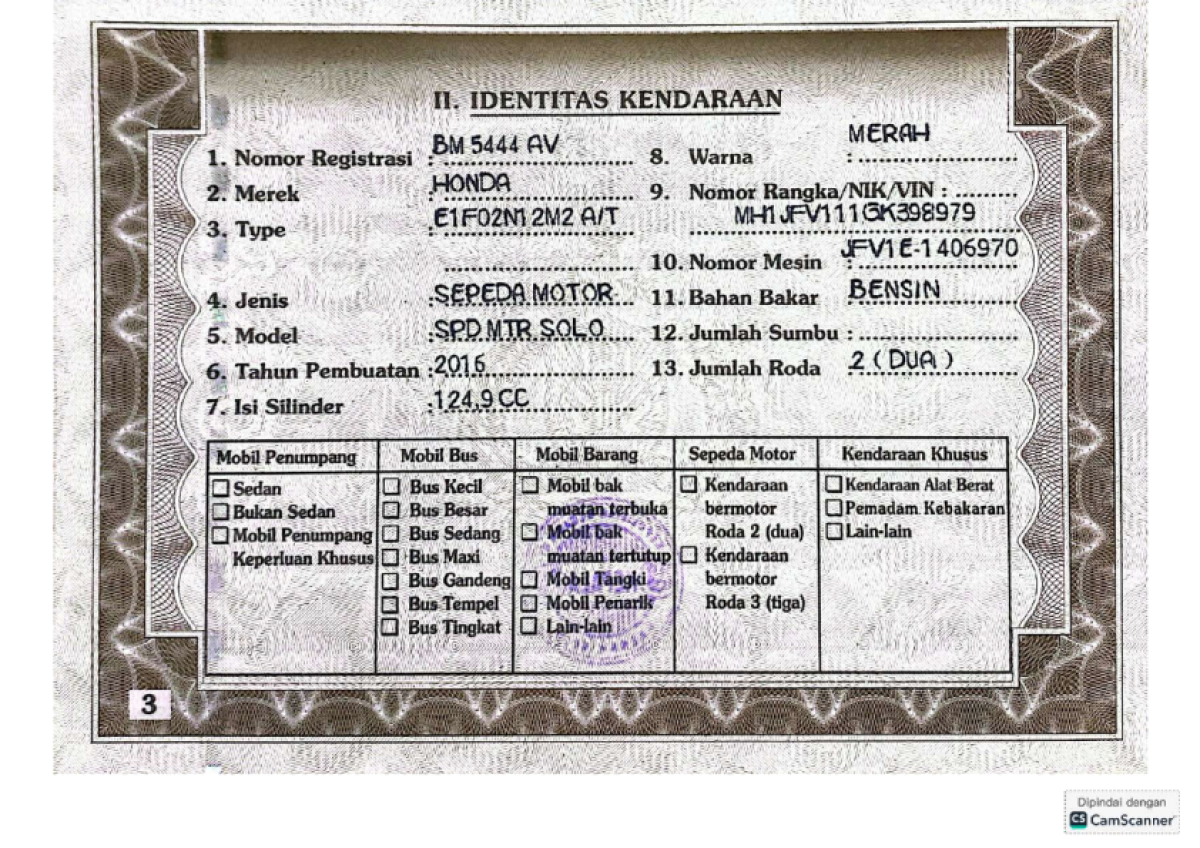 II. IDENTITAS KENDARAAN
1. Nomor Registrasi : BM 5444 AV
2. Merek : HONDA
3. Type : E1F02N12M2 A/T
4. Jenis : SEPEDA MOTOR
5. Model : SPD MTR SOLO
6. Tahun Pembuatan : 2016
7. Isi Silinder : 124,9 CC
8. Warna : MERAH
9. Nomor Rangka/NIK/VIN :
MH1JFV111GK398979
10. Nomor Mesin : JFV1E-1406970
11. Bahan Bakar : BENSIN
12. Jumlah Sumbu :
13. Jumlah Roda : 2 ( DUA )
Mobil Penumpang
Sedan
Bukan Sedan
Mobil Penumpang
Keperluan Khusus
Mobil Bus
Bus Kecil
Bus Besar
Bus Sedang
Bus Maxi
Bus Gandeng
Bus Tempel
Bus Tingkat
Mobil Barang
Mobil bak
muatan terbuka
Mobil bak
muatan tertutup
Mobil Tangki
Mobil Penarik
Lain-lain
Sepeda Motor
Kendaraan
bermotor
Roda 2 (dua)
Kendaraan
bermotor
Roda 3 (tiga)
Kendaraan Khusus
Kendaraan Alat Berat
Pemadam Kebakaran
Lain-lain
3
Dipindai dengan
CS CamScanner